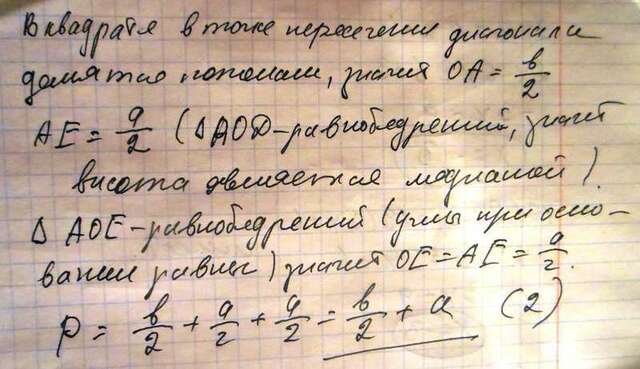 В квадрате в точке пересечения диагонали
делятся пополам, значит OA = в/2
AE = a/2 (△AOD - равнобедренный, значит
высота является медианой).
△ AOE - равнобедренный (углы при осно-
вании равны) значит OE = AE = a/2.
P = в/2 + a/2 + a/2 = в/2 + a (2)